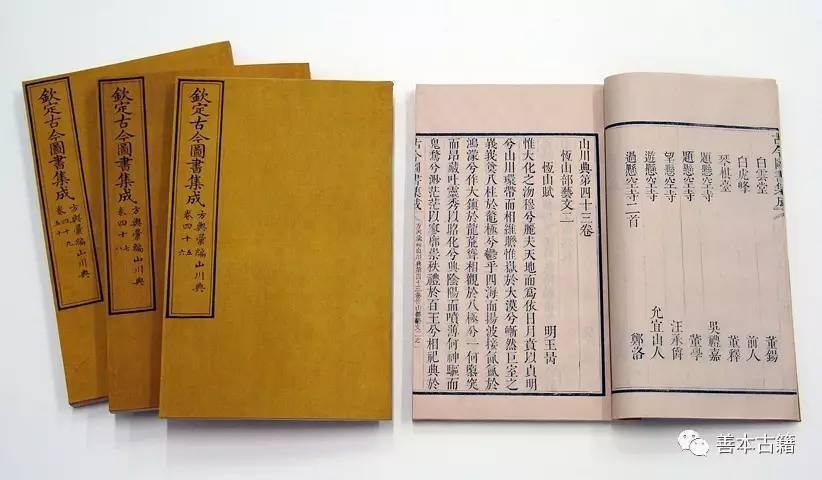 欽定古今圖書集成
方輿彙編山川典
卷四十九
卷五十
欽定古今圖書集成
方輿彙編山川典
卷四十七
八
欽定古今圖書集成
方輿彙編山川典
卷四十五
六
古今圖書集成
白雲堂 董錫
白虎峰 前人
琴棋臺 董釋
題懸空寺 吳禮嘉
題懸空寺 董學
望懸空寺 汪承爵
遊懸空寺 允宜山人
過懸空寺二首 鄭洛
山川典第四十三卷
恆山部藝文二
恆山賦 明王
惟大化之沕穆兮麗夫天地而爲依日月賁以貞明
兮山川環帶而相維懸惟嶽於大漠兮嶄然巨室之
峩峩奠八柱於鼇極兮鬱乎四海而揚波接氤氳於
鴻濛兮作大鎮於龍荒聳相觀於八極兮一何突
而昂藏吐靈秀以化兮與陰陽而噴薄何神驅而
鬼騖兮渺茫茫以寥廓崇秩禮於百王兮相祀典於
古今圖書集成
善本古籍